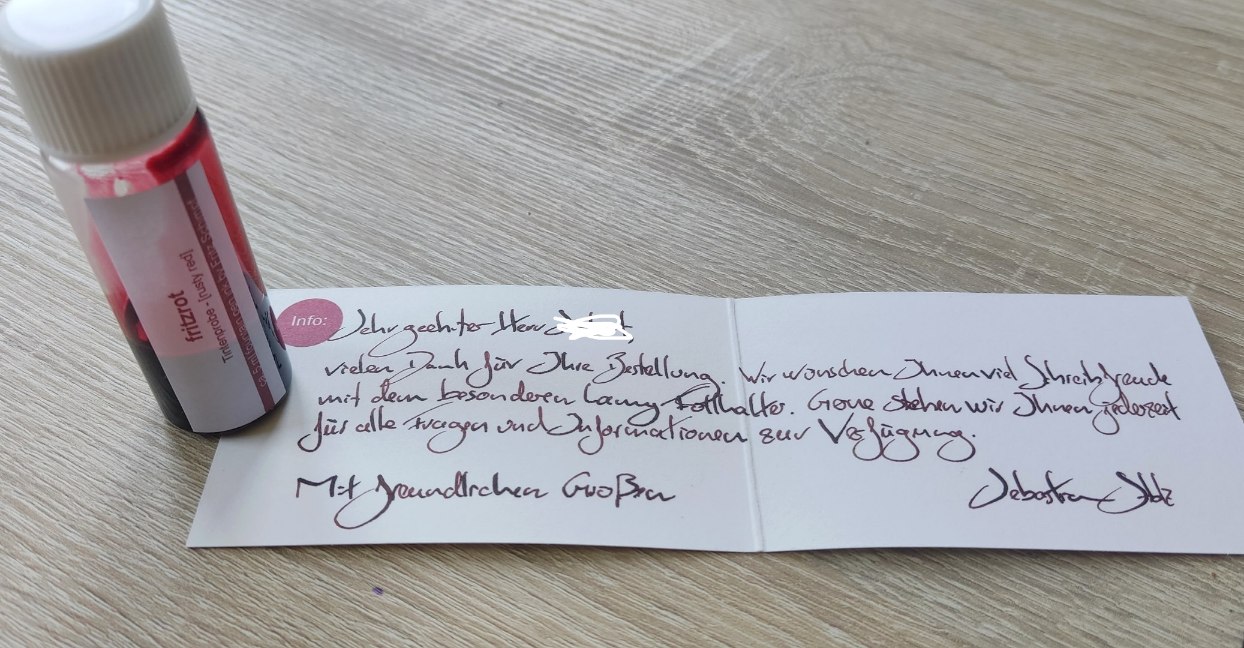 fritzrot
Tintenprobe - [rusty red]
Info:
Sehr geehrter Herr
vielen Dank für Ihre Bestellung. Wir wünschen Ihnen viel Schreibfreude
mit dem besonderen Lamy Füllhalter. Gerne stehen wir Ihnen jederzeit
für alle Fragen und Informationen zur Verfügung.
Mit freundlichen Grüßen
Sebastian